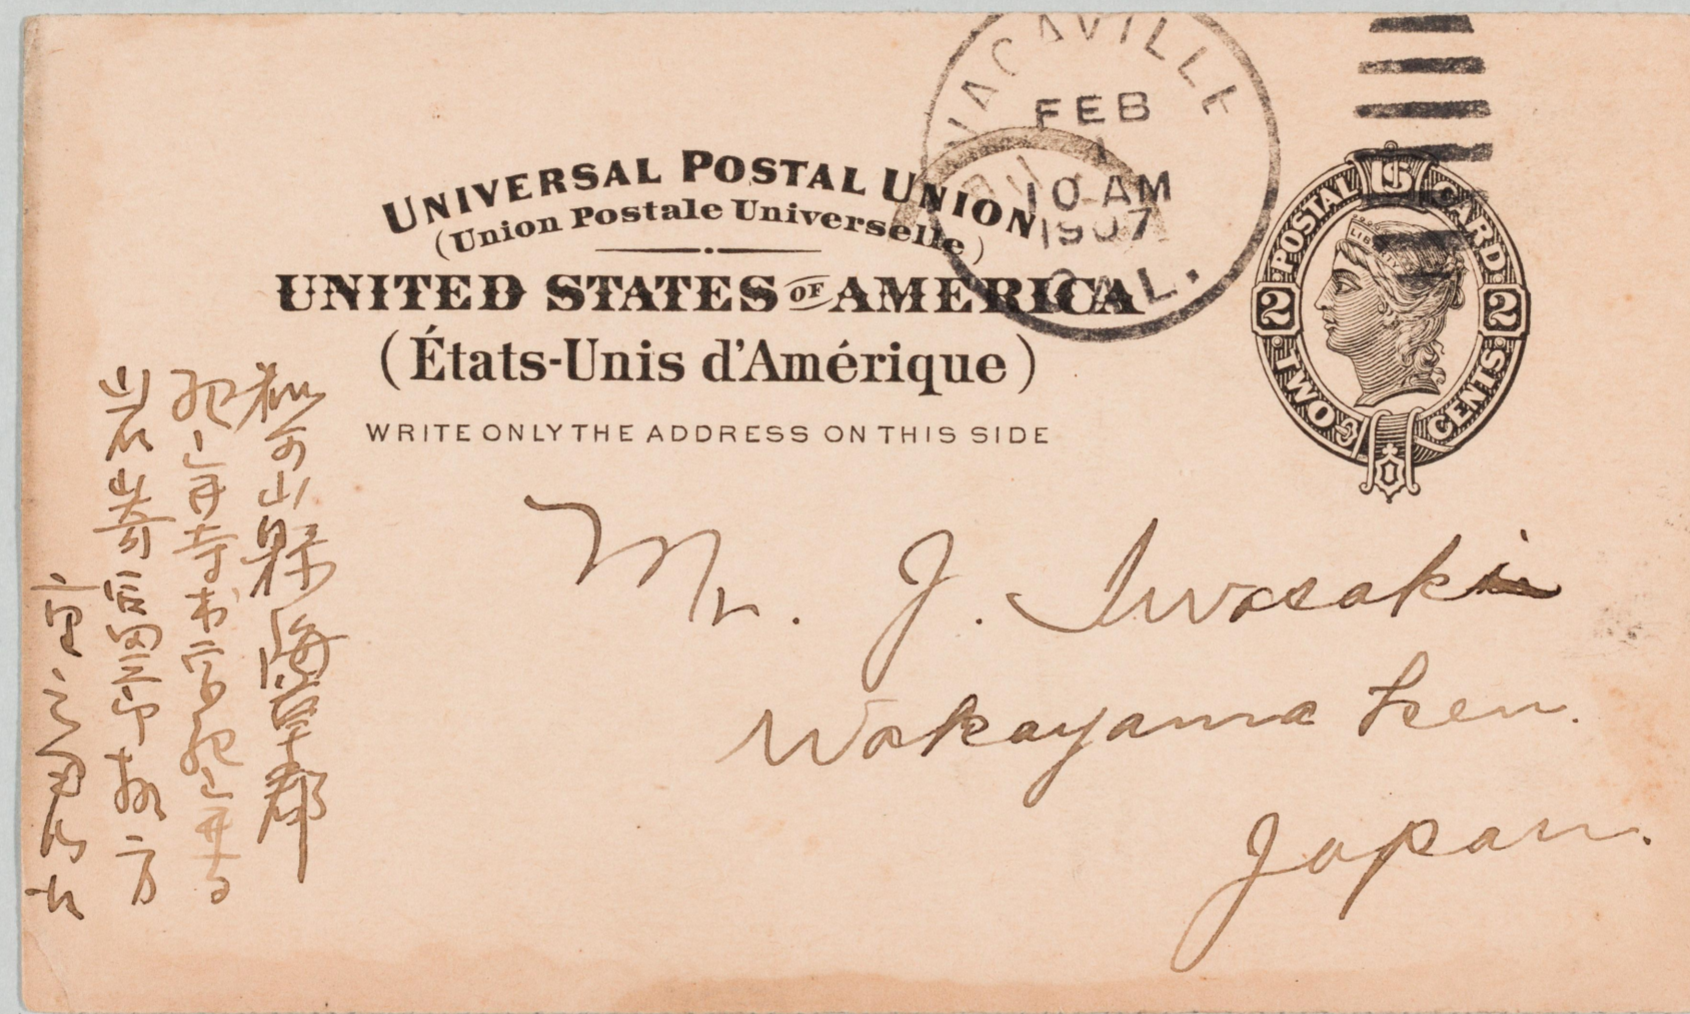 VACAVILLE
FEB
1
10 AM
1907
CAL.
UNIVERSAL POSTAL UNION
(Union Postale Universelle)
UNITED STATES OF AMERICA
(États-Unis d'Amérique)
WRITE ONLY THE ADDRESS ON THIS SIDE
POSTAL CARD
U S
LIB
2 2
TWO CENTS
Mr. J. Iwasaki
Wakayama Ken.
Japan.
和歌山縣海草郡
紀三井寺村字紀三井寺
岩嵜富三郎